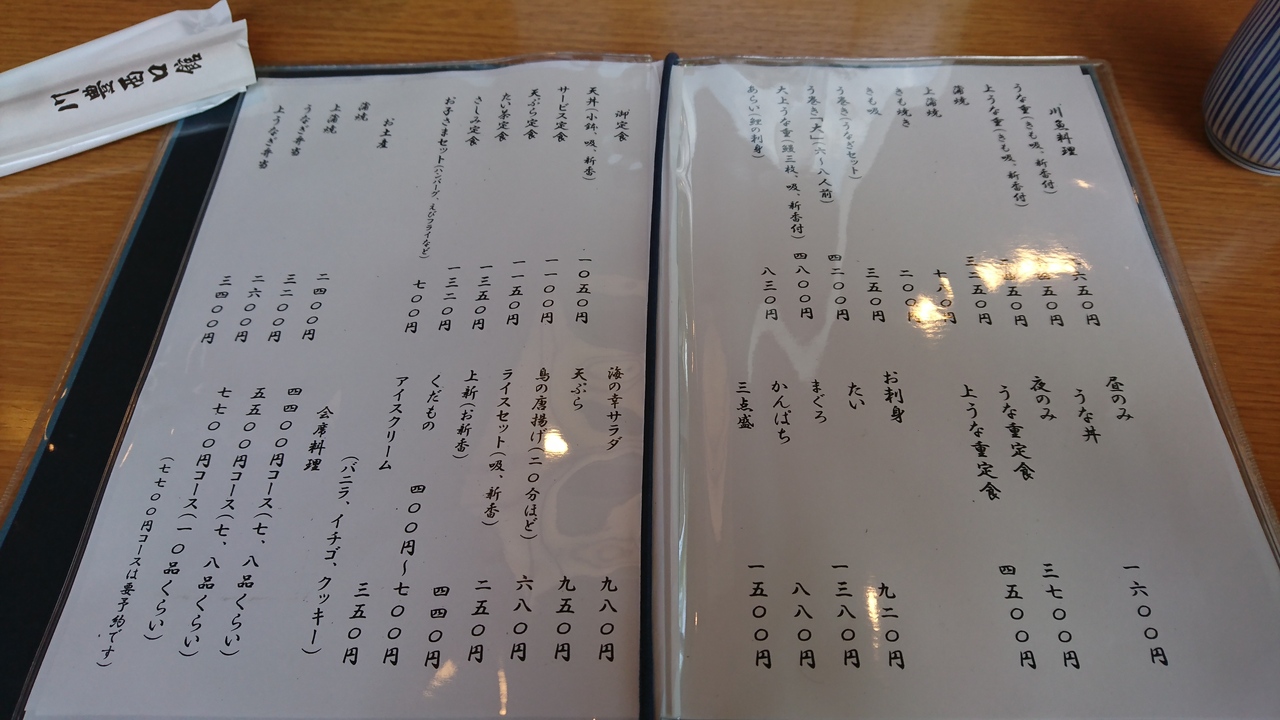 川魚料理
うな重(きも吸、新香付)
上うな重(きも吸、新香付)
蒲焼
上蒲焼
きも焼き
きも吸
う巻き(うなぎセット)
う巻き「大」(六〜八人前)
大上うな重(鰻三枚、吸、新香付) 四八〇〇円
あらい(鯉の刺身) 八三〇円
昼のみ
うな丼 一六〇〇円
夜のみ
うな重定食 三七〇〇円
上うな重定食 四五〇〇円
お刺身
たい 九二〇円
まぐろ 一三八〇円
かんぱち 八八〇円
三点盛 一五〇〇円
御定食
天丼(小鉢、吸、新香) 一〇五〇円
サービス定食 一一〇〇円
天ぷら定食 一一五〇円
たい茶定食 一三五〇円
さしみ定食 一三二〇円
お子さまセット(ハンバーグ、えびフライなど) 七〇〇円
お土産
蒲焼 二四〇〇円
上蒲焼 三二〇〇円
うなぎ弁当 二六〇〇円
上うなぎ弁当 三四〇〇円
海の幸サラダ 九八〇円
天ぷら 九五〇円
鳥の唐揚げ(二〇分ほど) 六八〇円
ライスセット(吸、新香) 二五〇円
上新(お新香) 四四〇円
くだもの 四〇〇円〜七〇〇円
アイスクリーム 三五〇円
(バニラ、イチゴ、クッキー)
会席料理
四四〇〇円コース(七、八品くらい)
五五〇〇円コース(七、八品くらい)
七七〇〇円コース(一〇品くらい)
(七七〇〇円コースは要予約です)